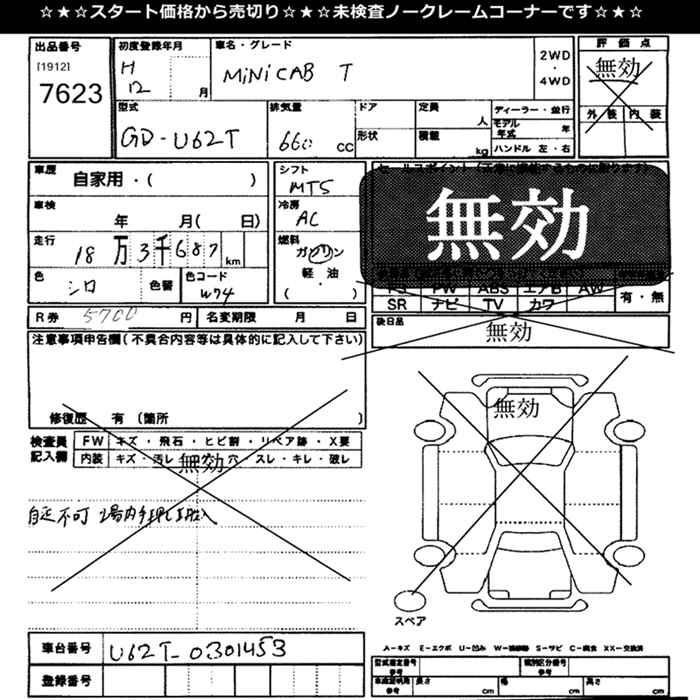 ☆★☆★スタート価格から売切り☆★☆★未検査ノークレームコーナーです☆★☆★
出品番号
[1912]
7623
初度登録年月
H
12 月
車名・グレード
MINICAB T
2WD
・
4WD
評価点
無効
外装 内装
型式
GD-U62T
排気量
660 CC
ドア
形状
定員
人
積載
kg
ディーラー・並行
モデル
年式 年
ハンドル 左・右
車歴
自家用・( )
車検
年 月( 日)
走行
18万3千687 km
色
シロ 色替
色コード
W74
シフト
MT5
冷房
AC
燃料
ガソリン
軽・油
( )
無効
PS PW ABS エアB AW
SR ナビ TV カワ
有・無
R券 5700 円
名変期限 月 日
後日品
無効
注意事項申告欄(不具合内容等は具体的に記入して下さい)
修復歴 有(箇所 )
検査員
記入欄
FW キズ・飛石・ヒビ割・リペア跡・X要
内装 キズ・汚レ・穴・スレ・キレ・破レ
無効
自走不可 場内手押し搬入
無効
スペア
車台番号
U62T-0301453
登録番号
A-キズ E-エクボ U-凹み W-補修跡 S-サビ C-腐食 XX-交換済
型式指定番号
参考
類別区分番号
参考
車庫証明用
参考
長さ cm
幅 cm
高さ cm